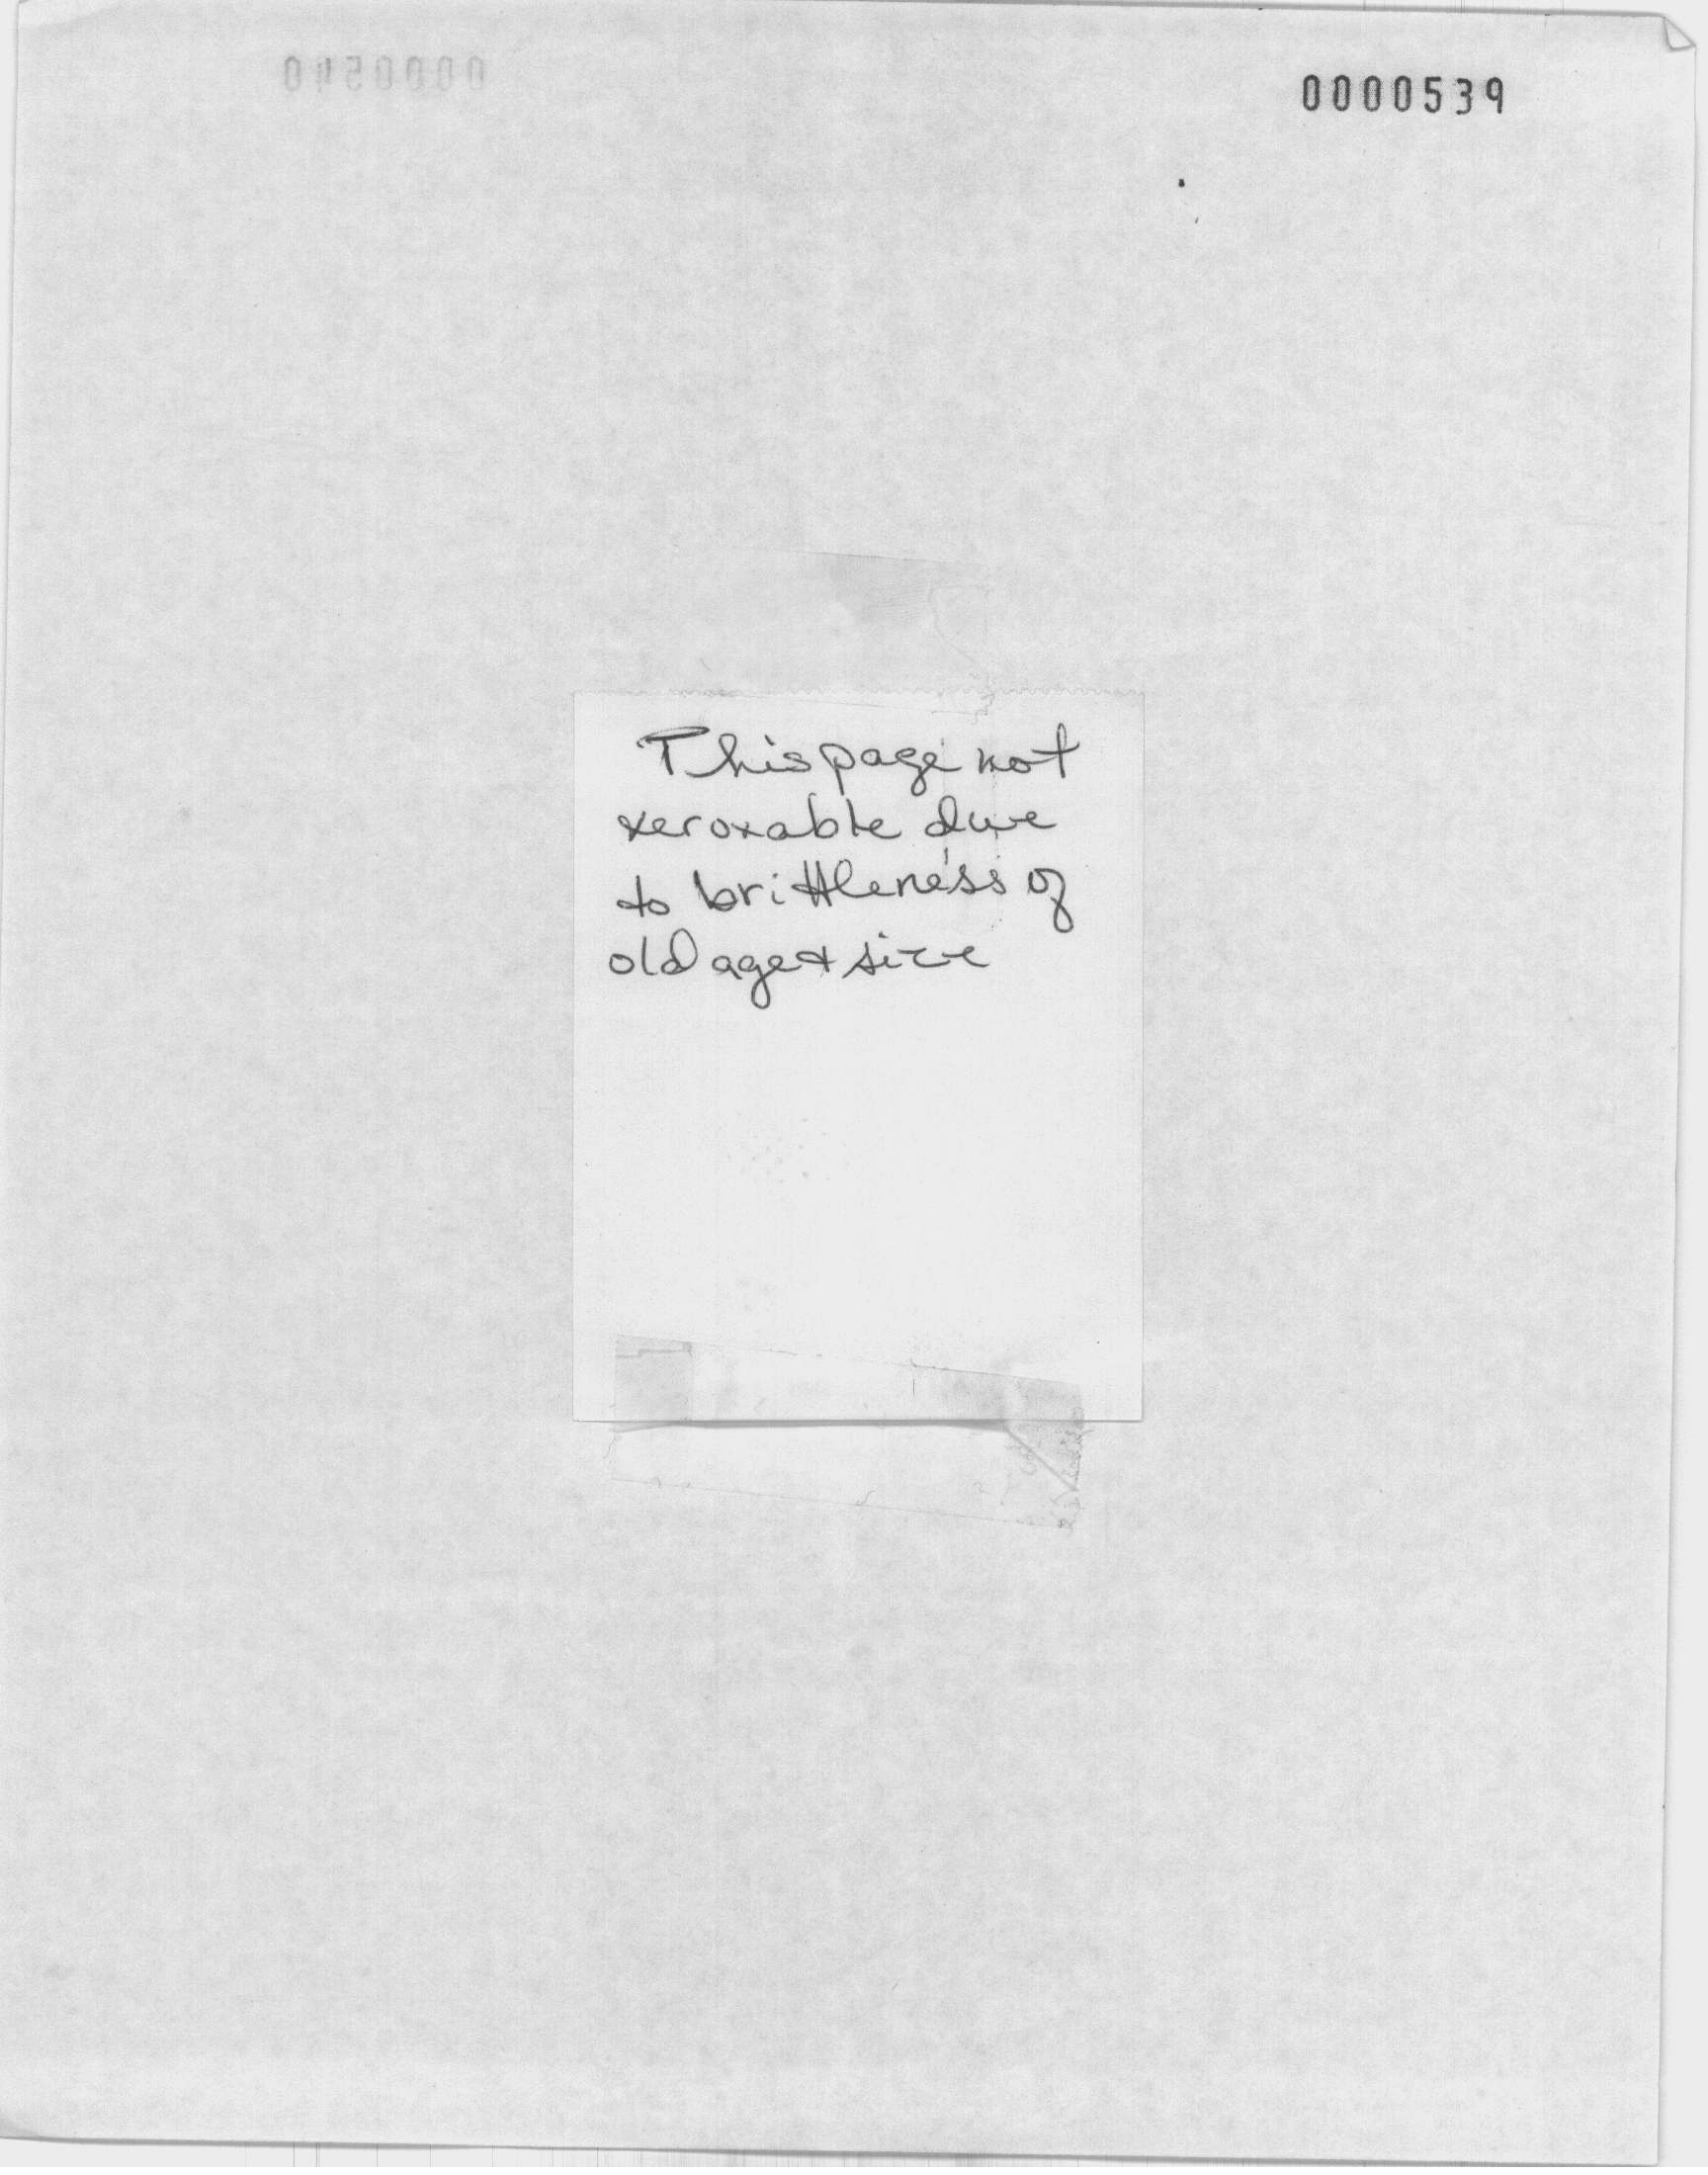 0000539
0000540
This page not
xeroxable due
to brittleness of
old age & size